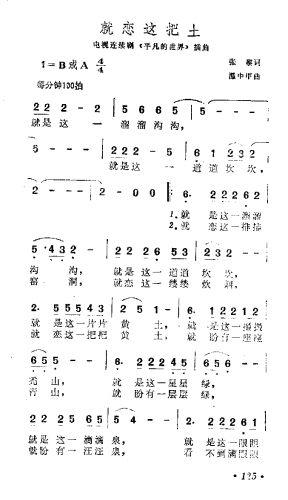 就恋这把土
电视连续剧《平凡的世界》插曲
1=B或A 4/4
张 词
温中甲曲
每分钟100拍
2 2 2 2 - | 5 6 6 5 |
就是这一 溜溜沟沟，
5 - - - | 2 2 2 - | 5 - - - | 6 1 2 3 2 |
就是这一 道道坎坎，
2 - - - | 2 - 0 0 | 6. 2 2 2 6 2 |
1.就 是这一溜溜
2.就 恋这一排排
5 4 3 2 - | 2 2 6 0 5 3 | 2 - - - |
沟沟， 就是这一道道 坎坎，
窑洞， 就恋这一缕缕 炊烟，
2. 5 5 5 4 3 | 2 5 5 - | 6. 2 2 2 6 1 |
就 是这一片片 黄土， 就 是这一
就 恋这一把把 黄土， 就 盼有一座座
6 5 5 - | 6. 2 2 4 5 | 6 5 - - |
秃山， 就 是这一星星 绿，
青山， 就 盼有一层层 绿，
5 2 5 4 3 | 2 - - - | 2. 2 2 2 6 1 |
就是这一 滴滴泉， 就 是这一眼眼
就盼有一 汪汪泉， 看 不到满眼眼
· 125 ·